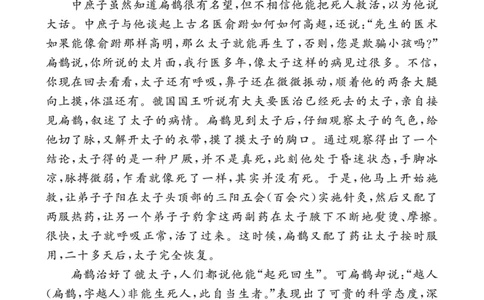 中庶子虽然知道扁鹊很有名望,但不相信他能把死人救活,以为他说
大话。中庶子与他谈起上古名医俞跗如何如何高超,还说:“先生的医术
如果能像俞跗那样高明,那么太子就能再生了,否则,您是欺骗小孩吗?”
扁鹊说,你所说的太片面,我行医多年,像太子这样的病见过很多。不信,
你现在回去看看,太子还有呼吸,鼻子还在微微振动,顺着他的两条大腿
向上摸,体温还有。虢国国王听说有大夫要医治已经死去的太子,亲自接
见扁鹊,叙述了太子的病情。扁鹊见到太子后,仔细观察太子的气色,给
他切了脉,又解开太子的衣带,摸了摸太子的胸口。通过观察得出了一个
结论,太子得的是一种尸厥,并不是真死,此刻他处于昏迷状态,手脚冰
凉,脉搏微弱,乍看就像死了一样,其实并没有死。于是,他马上开始施
救,让弟子子阳在太子头顶部的三阳五会(百会穴)实施针灸,然后又配了
两服热药,让另一个弟子子豹拿这两副药在太子腋下不断地熨烫、摩擦。
很快,太子就呼吸正常,活了过来。这时候,扁鹊又配了药让太子按时服
用,二十多天后,太子完全恢复。
扁鹊治好了虢太子,人们都说他能“起死回生”。可扁鹊却说:“越人
(扁鹊,字越人)非能生死人,此自当生者。”表现出了可贵的科学态度,深